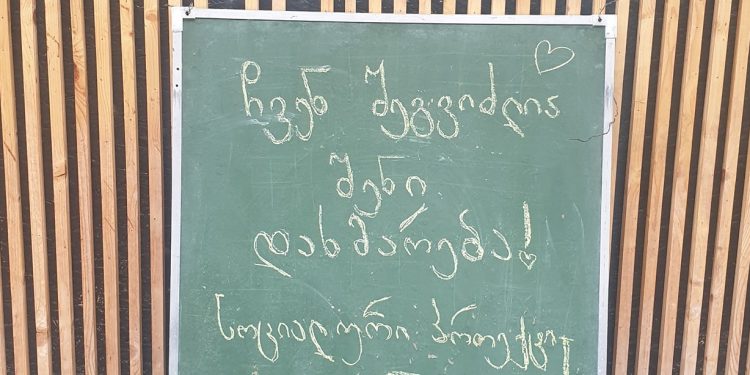 ჩვენ შეგვიძლია
შენი
დახმარება!
სოციალური პროექტი